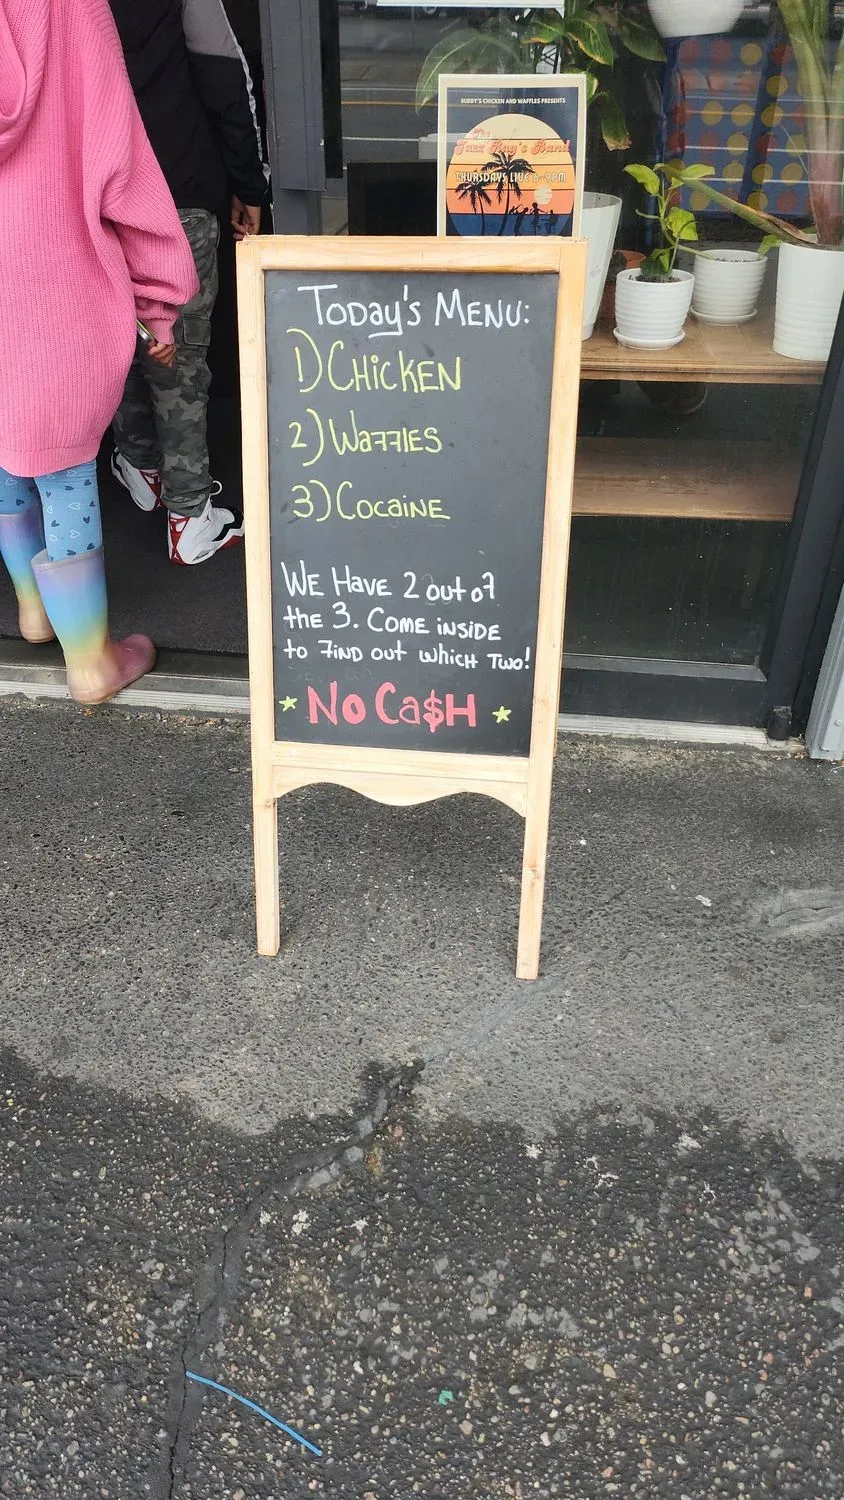 BUDDY'S CHICKEN AND WAFFLES PRESENTS
The
Jazz Rug's Band
THURSDAYS LIVE 6-9PM
Today's MENU:
1) CHicKEN
2) WaffLES
3) Cocaine
WE Have 2 out of
the 3. Come inside
to find out which Two!
No Ca$H